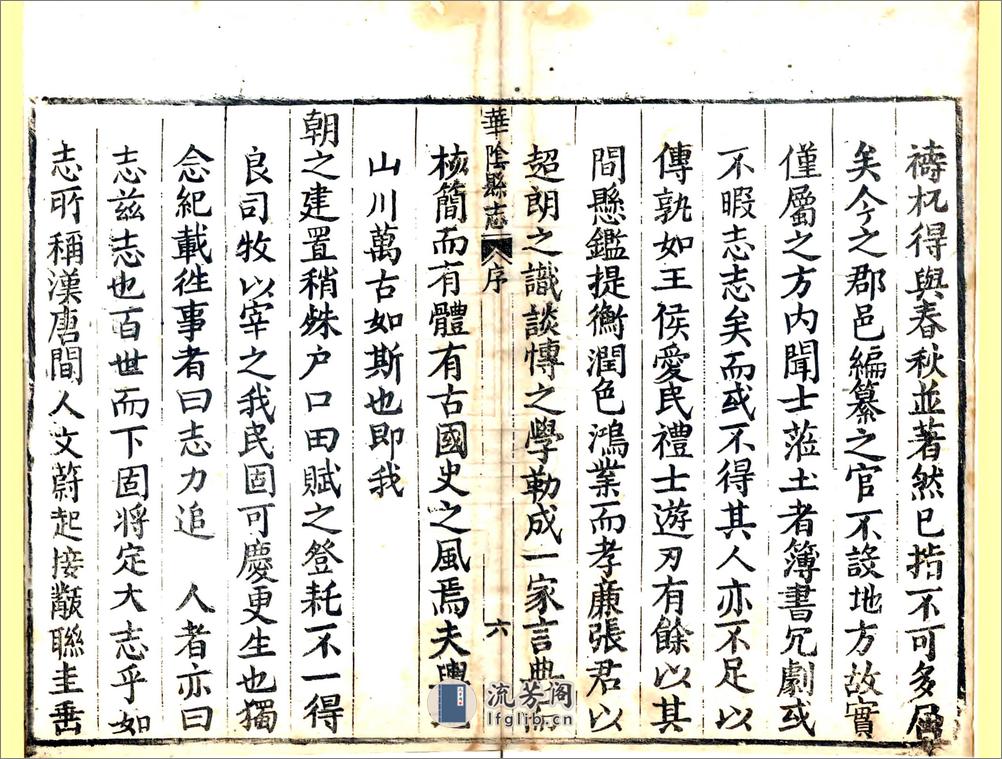 禱杌得與春秋並著然已指不可多屈
矣今之郡邑編纂之官不設地方故實
僅屬之方内聞士蒞土者簿書冗劇或
不暇志志矣而或不得其人亦不足以
傳孰如王侯愛民禮士遊刃有餘以其
間懸鑑提衡潤色鴻業而孝廉張君以
超朗之識談愽之學勒成一家言典
華陰縣志
序
六
核簡而有體有古國史之風焉夫輿
山川萬古如斯也即我
朝之建置稍殊户口田賦之登耗不一得
良司牧以宰之我民固可慶更生也獨
念紀載徃事者曰志力追 人者亦曰
志兹志也百世而下固将定大志乎如
志所稱漢唐間人文蔚起接黻聯圭垂
流芳阁
lfglib.cn